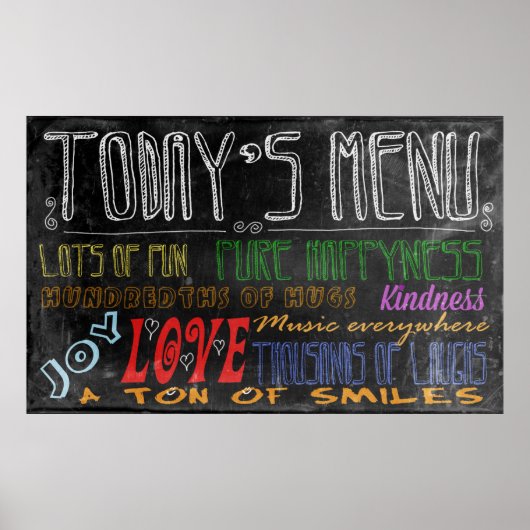 TODAY'S MENU
LOTS OF FUN PURE HAPPYNESS
HUNDREDTHS OF HUGS Kindness
JOY LOVE Music everywhere
THOUSANDS OF LAUGHS
A TON OF SMILES